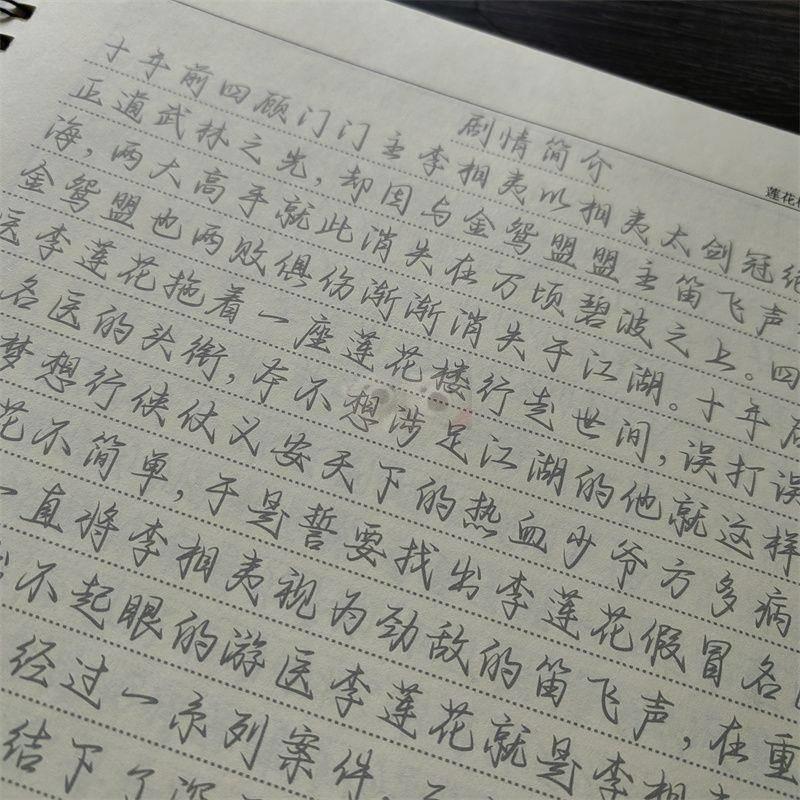 莲花
剧情简介
十年前四顾门门主李相夷以相夷太剑冠绝
正道武林之先，却因与金鸳盟盟主笛飞声
海，两大高手就此消失在万顷碧波之上。四
金鸳盟也两败俱伤渐渐消失于江湖。十年后
医李莲花拖着一座莲花楼行走世间，误打误
名医的头衔，本不想涉足江湖的他就这样
梦想行侠仗义安天下的热血少爷方多病
花不简单，于是誓要找出李莲花假冒名医
一直将李相夷视为劲敌的笛飞声，在重
不起眼的游医李莲花就是李相
经过一系列案件，
结下了深